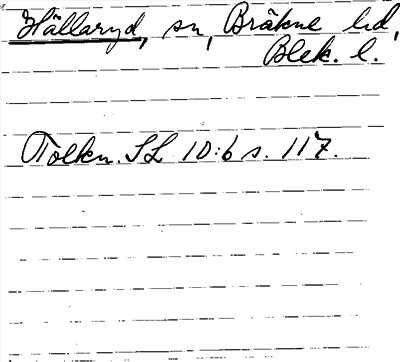 Hällaryd, sn, Bräkne hd,
Blek. l.
Tolkn. SL 10:6 s. 117.